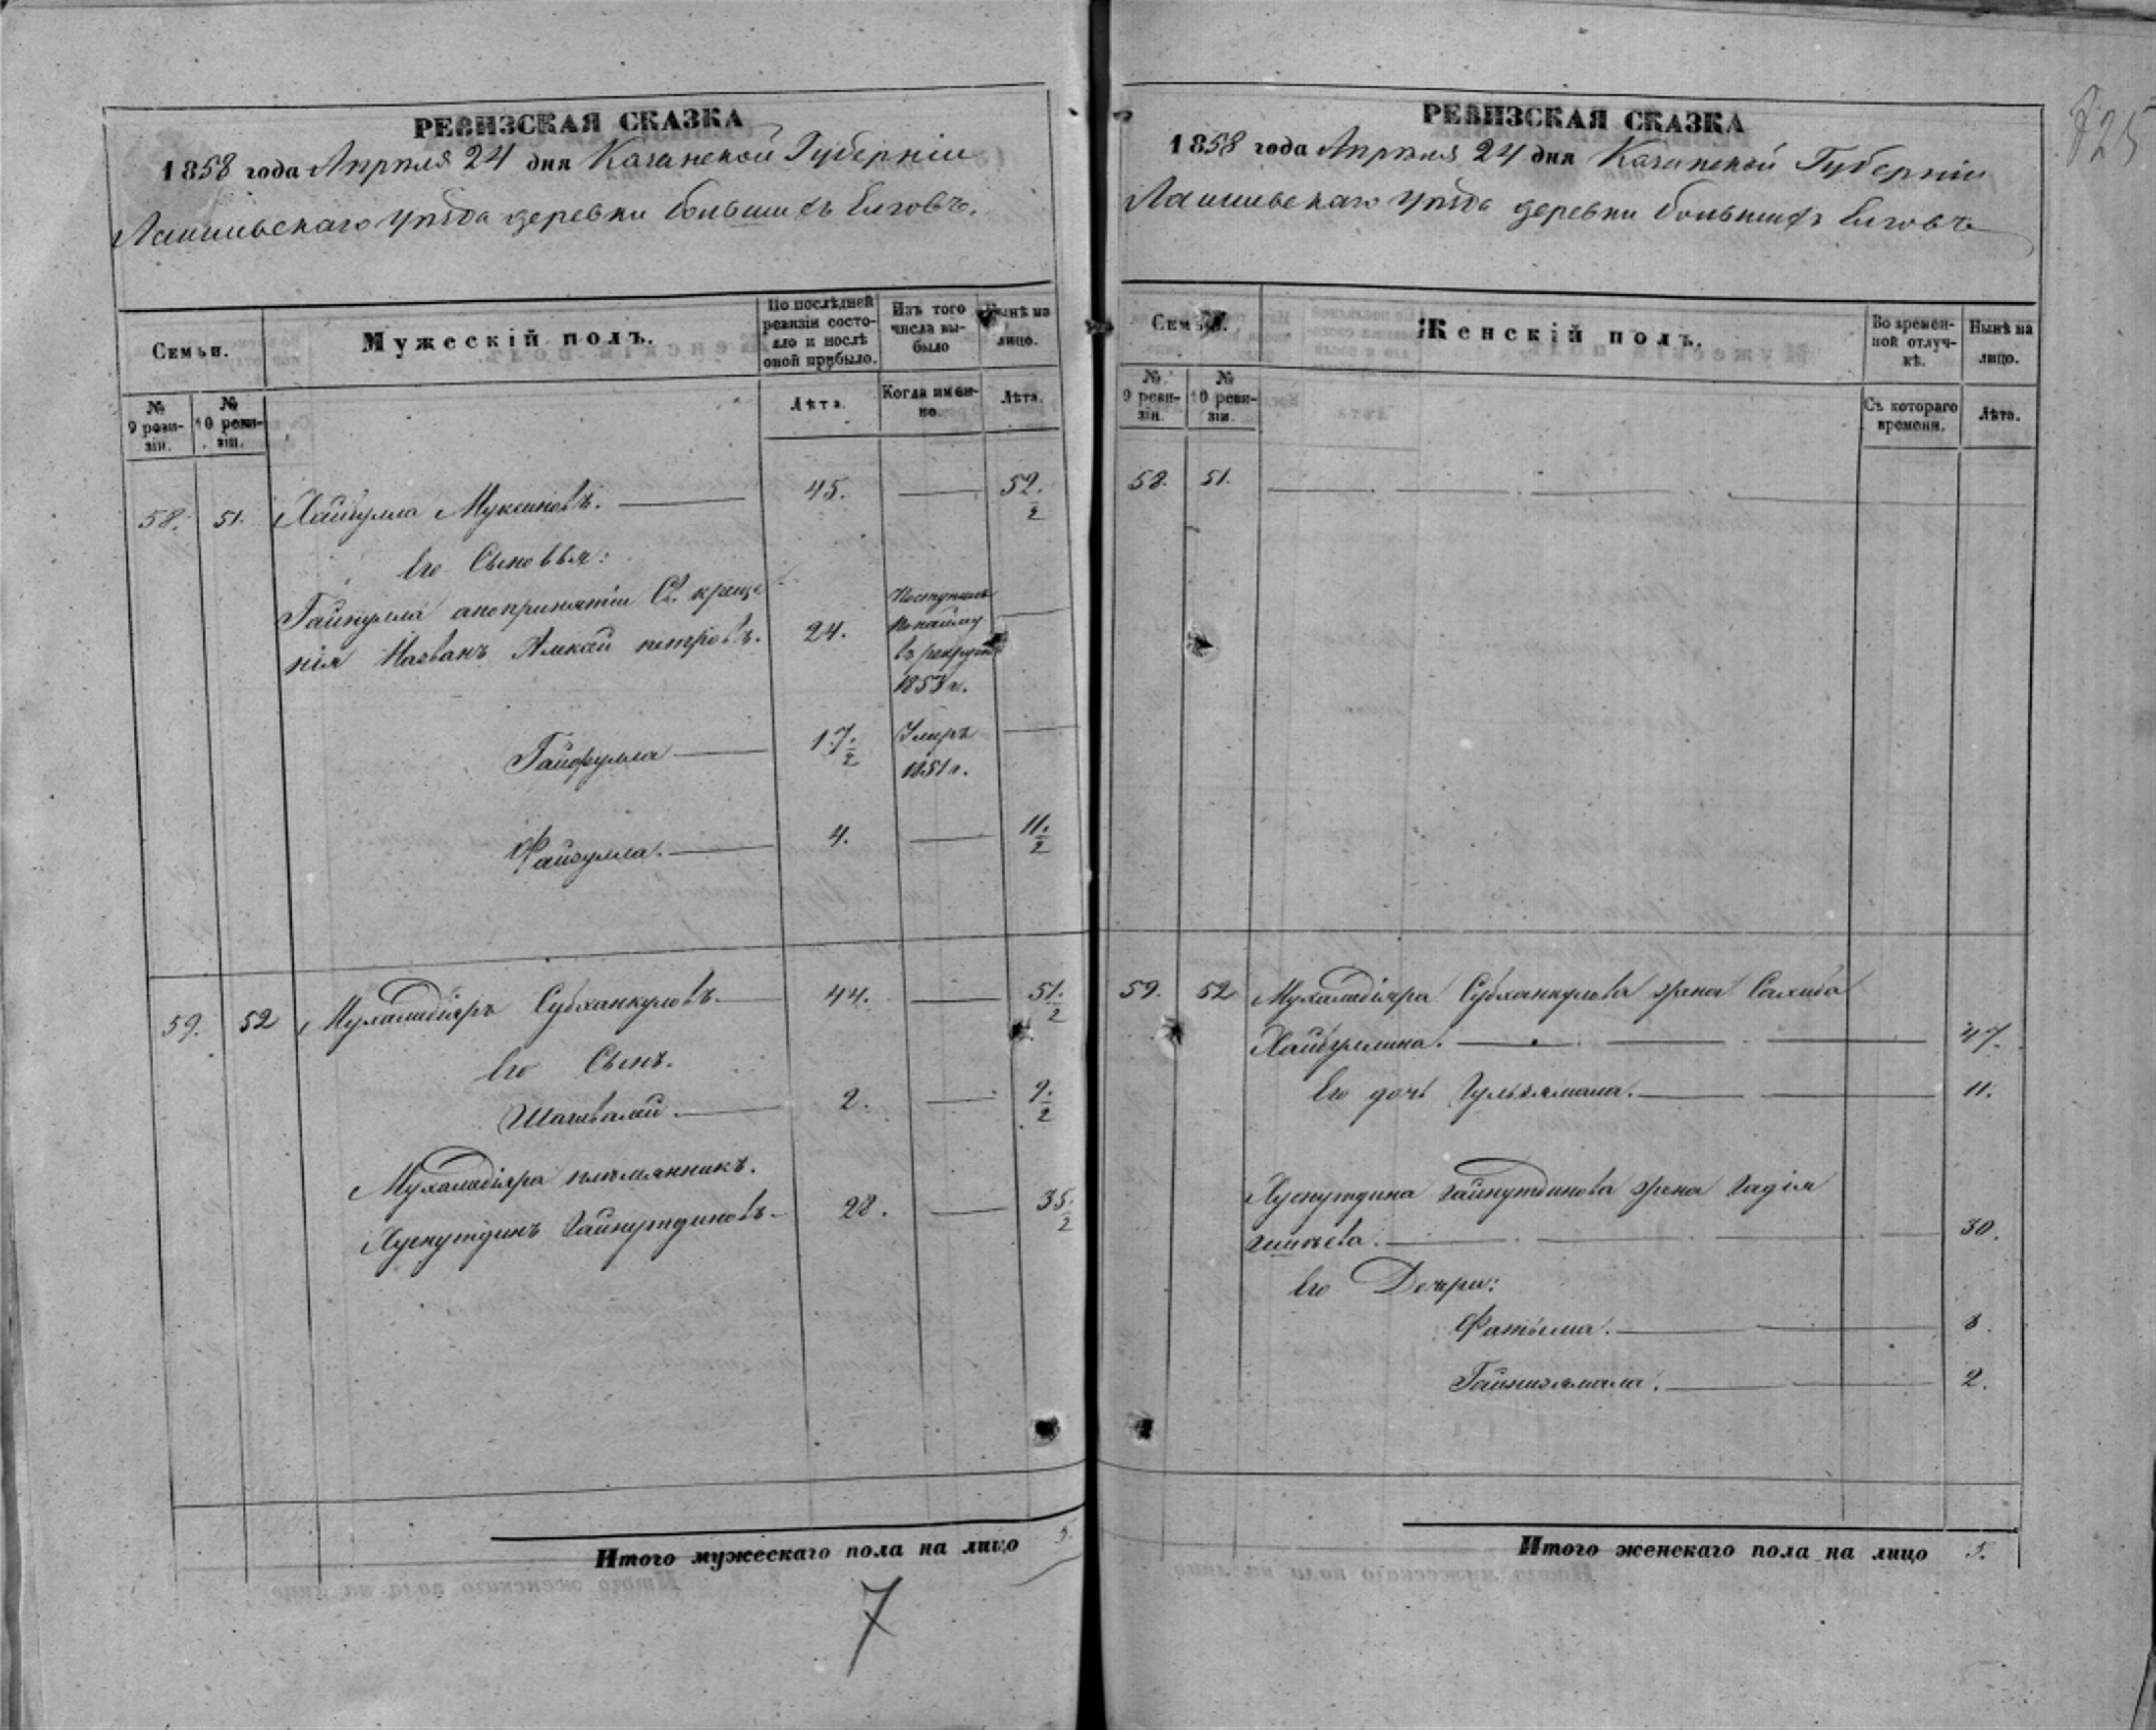 РЕВИЗСКАЯ СКАЗКА
1858 года Апреля 24 дня Казанской Губерніи
Лаишевскаго уѣзда деревни большихъ Елговъ.
Семьи.
Мужескій полъ.
По послѣдней ревизіи состояло и послѣ оной прибыло.
Изъ того числа выбыло
Нынѣ на лицо.
№ 9 ревизіи.
№ 10 ревизіи.
Лѣта.
Когда именно.
Лѣта.
58. 51. Хайбулла Муксиновъ. 45. 52. 2
Его Сыновья:
Гайнулла апопринятіи Св. креще
нія Названъ Алексѣй петровъ. 24. Поступилъ
по найму
въ рекруты
1853 г.
Гайфулла 17. 2 Умеръ
1851 г.
Файзулла. 4. 11. 2
59. 52 Мухамадіяръ Субханкуловъ. 44. 51. 2
Его Сынъ.
Шагивалей. 2. 9. 2
Мухамадіяра племянникъ.
Хуснутдинъ Гайнутдиновъ. 28. 35. 2
Итого мужескаго пола на лицо 5.
7
РЕВИЗСКАЯ СКАЗКА
1858 года Апреля 24 дня Казанской Губерніи
Лаишевскаго уѣзда деревни большихъ Елговъ
Семьи.
Женскій полъ.
Во временной отлучкѣ.
Нынѣ на лицо.
№ 9 ревизіи.
№ 10 ревизіи.
Съ котораго времени.
Лѣта.
58. 51.
59. 52 Мухамадіяра Субханкулова жена Салиха
Хайбуллина. 47.
Его дочь Гульзямала. 11.
Хуснутдина Гайнутдинова жена Гадія
30.
Его Дочери:
Фатыма. 8.
Гайнизямала. 2.
Итого женскаго пола на лицо 5.